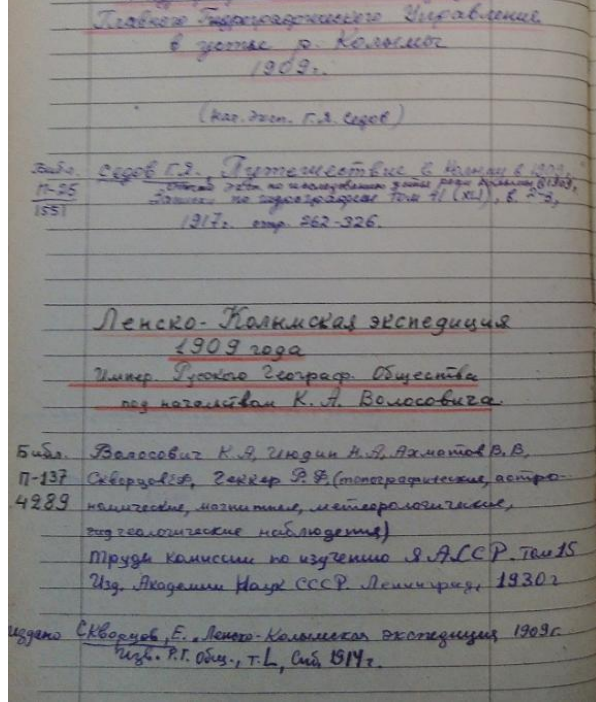 Главного Гидрографического Управления
в устье р. Колымы
1909г.
(нач. эксп. Г.Я. Седов)
Библ. Седов Г.Я., Путешествие в Колыму в 1909г.
П-25 Отчет эксп. по исследованию устья реки Колымы в 1909г.
1551 Записки по гидрографии том 41 (XLI), в. 2-3,
1917г. стр. 262-326.
Ленско-Колымская экспедиция
1909 года
Импер. Русского Географ. Общества
под началством К. А. Волосовича
Библ. Волосович К.А, Июдин Н.А, Ахматов В.В,
П-137 Скворцов Е.Ф, Геккер Р.Ф, (топографические, астро-
4289 номические, магнитные, метеорологические,
геологические наблюдения)
Труды комиссии по изучению ЯАССР. Том 15
Изд. Академии Наук СССР. Ленинград, 1930г
издано Скворцов, Е. Ленско-Колымская экспедиция 1909г.
Изв. Р.Г. Общ., т. L, Спб, 1914г.